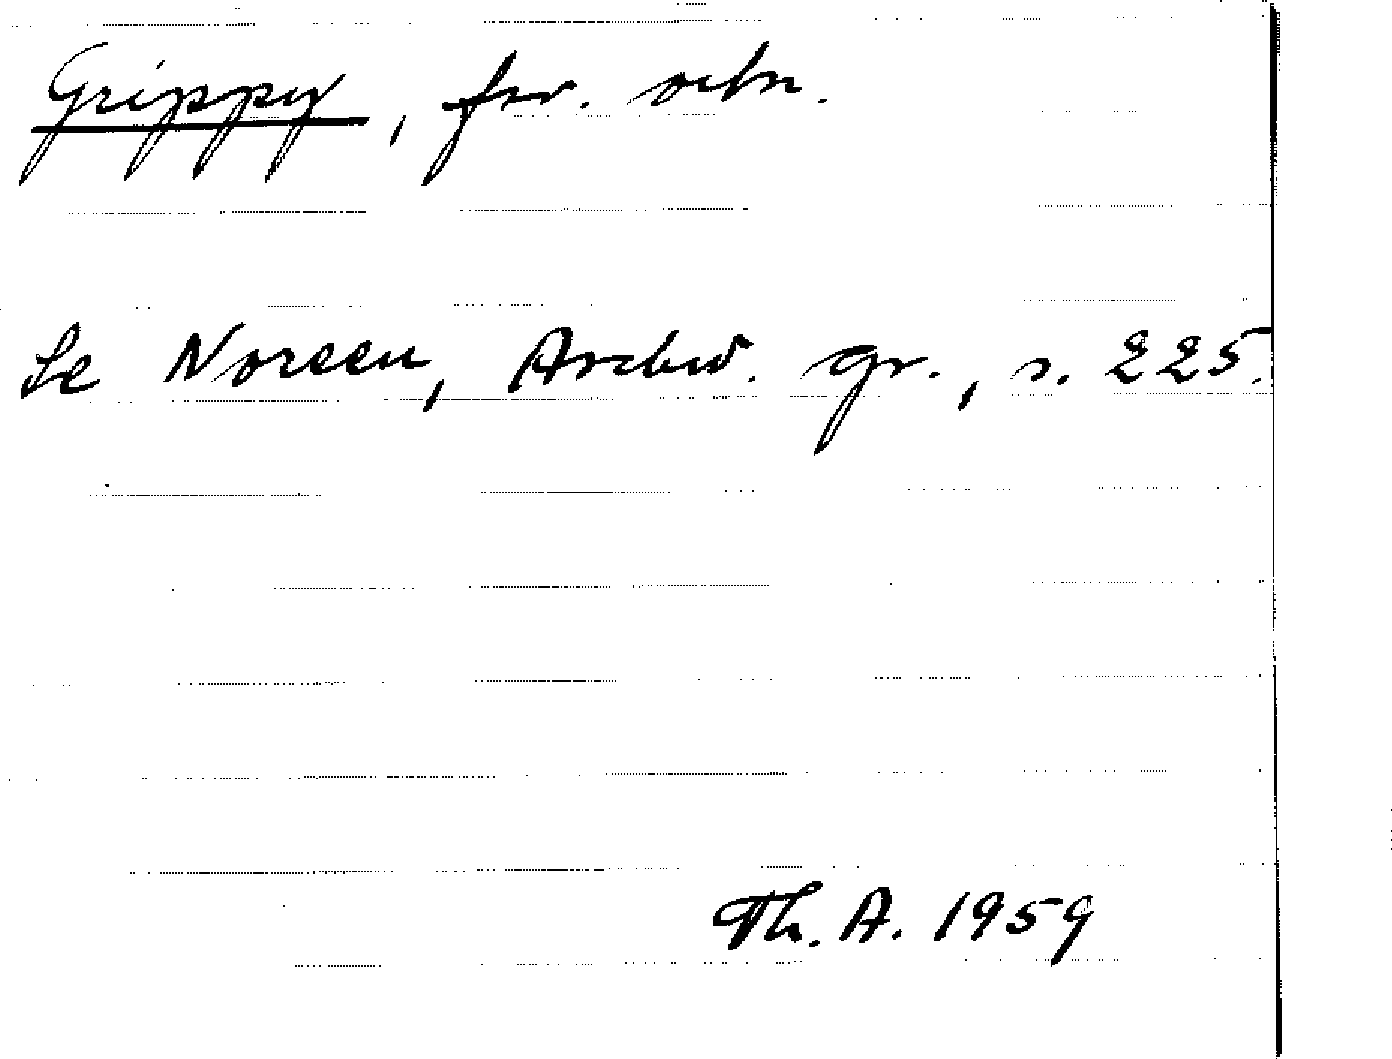 Grippy, fsv. ortn.
Se Noreen, Ärtebn. gr., s. 225.
Th. A. 1959